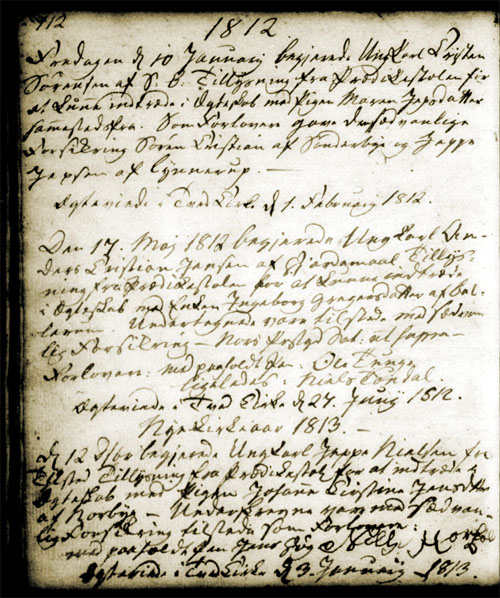 412
1812
Fredagen d 10 Januarij begjerede Ungkarl Cristen
Sørensen af S. B. Tillysning fra Prædikestolen for
at kunne indtræde i Ægteskab med Pigen Maren Jepsdatter
samestedsfra. Som Forlover gave den sædvanlige
Forsikring Søren Cristian af Sønderbye og Jeppe
Jepsen af Lynnerup.
Ægteviede i Tved Kirke d 1. Februarij 1812.
Den 17. Maj 1812 begjerede Ungkarl An-
ders Cristian Jensen af Tillys-
ning fra Prædikestolen for at kunne indtræde
i Ægteskab med Enken Ingeborg Gregersdatter af Bal-
lerum Undertegnede vare tilstede med sædvan-
lig Forsikring
Forlovere: med paaholdt Pen. Ole
ligeledes: Niels
Ægteviede i Tved Kirke d 27. Junij 1812.
Nye Kirkeaar 1813.
d 12 begjerede Ungkarl Jeppe Nielsen fra
Tilsted Tillysning fra Prædikestol for at indtræde i
Ægteskab med Pigen Johanne Cirstine Jensdatter
af Norbye Underskrevne vare med sædvan-
lig Forsikring tilstede som Forlovere:
med paaholden Pen Jens
Ægteviede i Tved Kirke d 3. Januarij 1813.